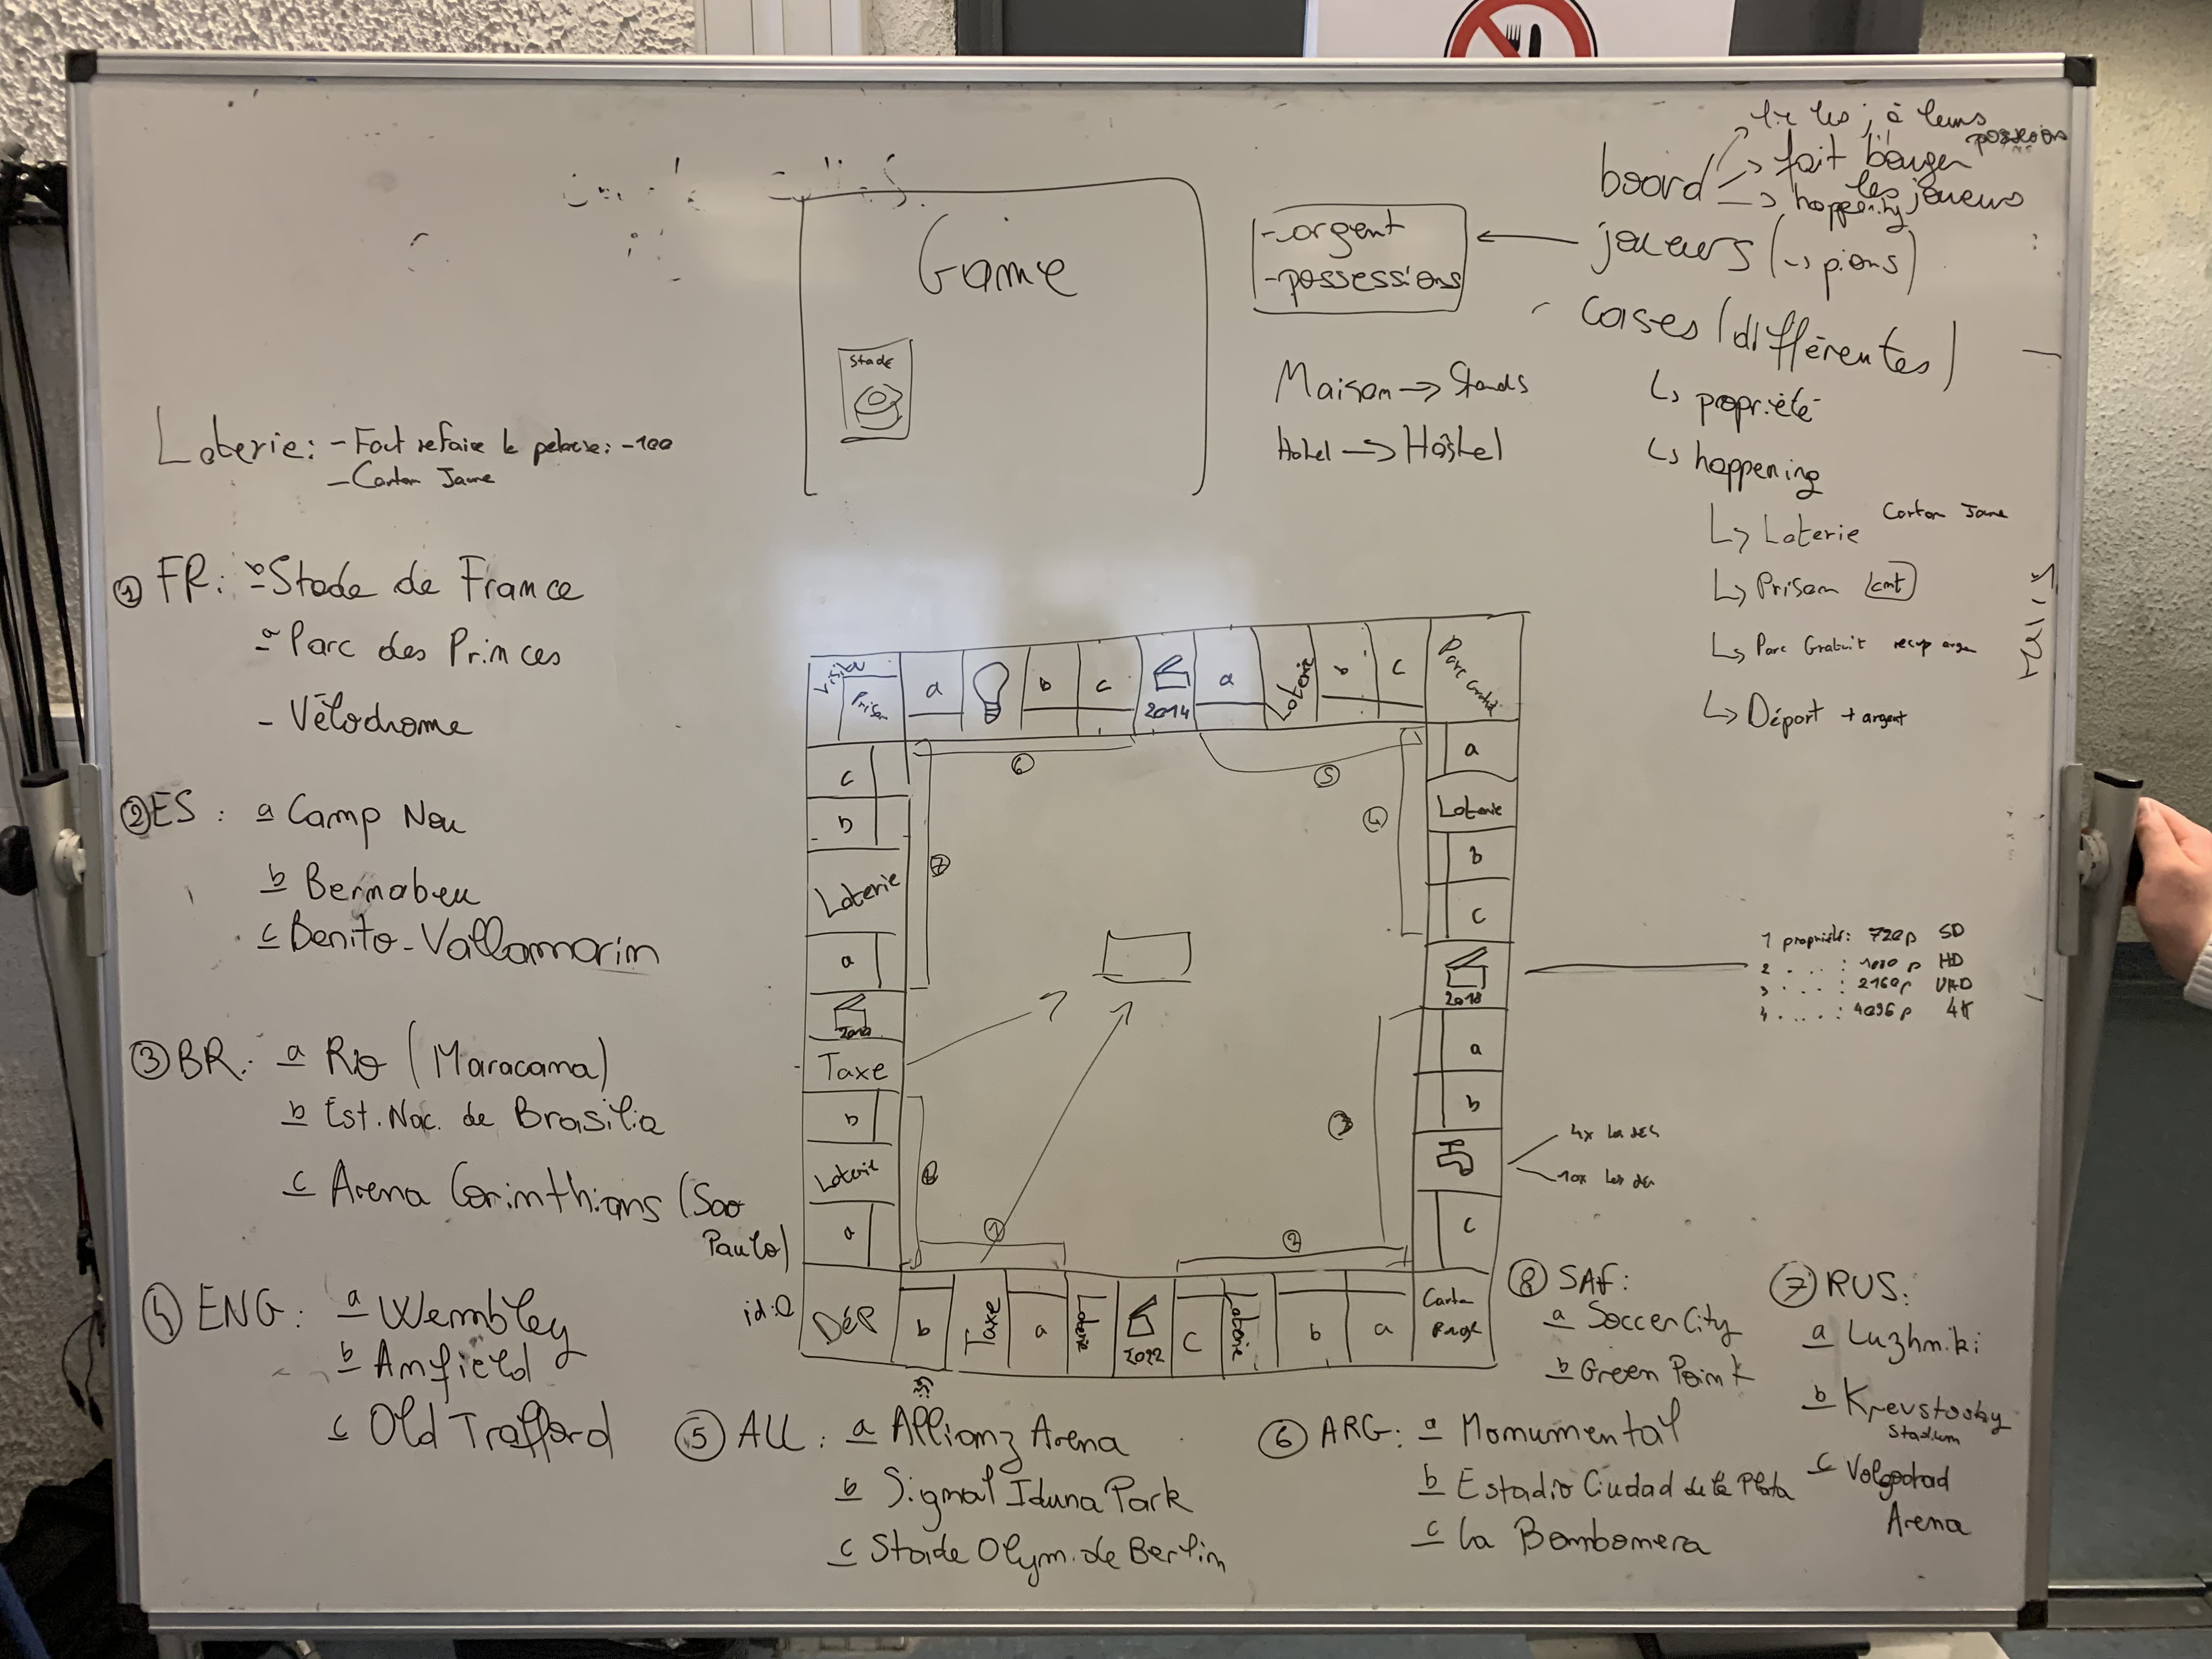 Game
Stade
-argent
-possessions
board
fait bouger
les joueurs
happening
joueurs (-> pions)
cases (différentes)
↳ propriété
↳ happening
↳ Loterie
Carton Jaune
↳ Prison
↳ Parc Gratuit
↳ Départ + argent
Maison -> Stands
Hotel -> Hôstel
Loterie: - Faut refaire le pelouse: -100
- Carton Jaune
① FR: b Stade de France
a Parc des Princes
- Vélodrome
② ES: a Camp Nou
b Bernabeu
c Benito-Vallamarin
③ BR: a Rio (Maracana)
b Est. Nac. de Brasilia
c Arena Corinthians (Sao
Paulo)
④ ENG: a Wembley
b Anfield
c Old Trafford
⑤ ALL: a Allianz Arena
b Signal Iduna Park
c Stade Olym. de Berlin
⑥ ARG: a Monumental
b Estadio Ciudad de la Plata
c La Bombonera
⑧ SAF:
a Soccer City
b Green Point
⑦ RUS:
a Luzhniki
b Krevstosky
Stadium
c Volgograd
Arena
Visite
Prison
a
b
c
2014
a
Loterie
b
c
Parc Gratuit
⑥
⑤
c
b
Loterie
a
⑦
Taxe
b
Loterie
a
⑧
a
Loterie
b
c
④
2018
a
b
c
③
id:0
DÉP
b
Taxe
a
Loterie
2022
c
Loterie
b
a
Carton
Rouge
①
②
1 propriété: 720p SD
2 . . . . : 1080p HD
3 . . . . : 2160p UHD
4 . . . . : 4096p 4K
4x les dés
10x les dés